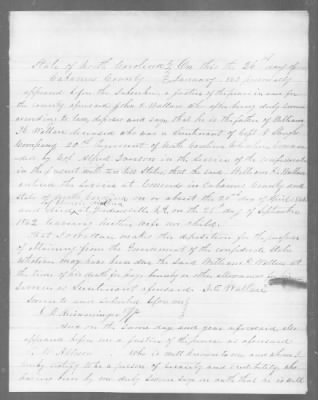 State of North Carolina } On this the 26th day of
Cabarrus County } January 1863 personally
appeared before the Subscriber, a justice of the peace in and for
the county aforesaid John C. Wallace who after being duly sworn
according to law, deposes and says that he is the father of William
H. Wallace deceased who was a Lieutenant of Capt
Company 20th Regiment of North Carolina Volunteers comman-
ded by Col Alfred Iverson in the Service of the Confederate
in the present with the U. States, that the said William H. Wallace
entered the Service at Concord in Cabarrus County and
State of North Carolina on or about the 20th day of April 1861
and died at Gordonsville Va. on the 25th day of September
1862 leaving neither wife nor child.
That Deponent makes this deposition for the purpose
of obtaining from the Government of the Confederate States
whatever may have been due the said William H. Wallace at
the time of his death for pay, bounty or other allowances for his
Services as Lieutenant aforesaid. J. C. Wallace
Sworn to and subscribed before me
J.P.
And on the same day and year aforesaid also
appeared before me a justice of the peace as aforesaid
Allison who is well known to me and whom I
hereby certify to be a person of veracity and credibility who
being by me duly sworn says on oath that he is well